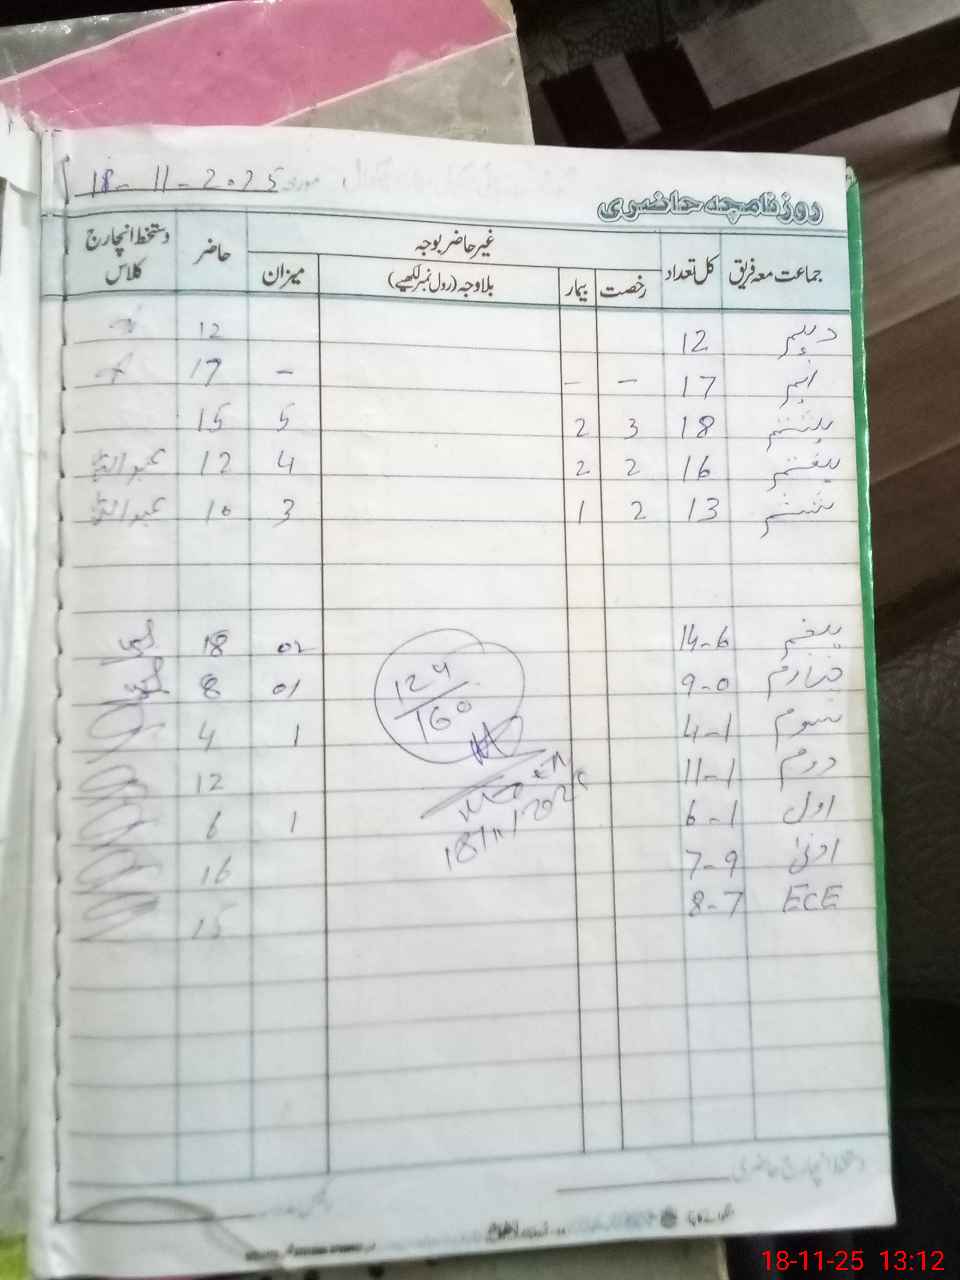 روزنامچہ حاضری مورخہ 18-11-2025
جماعت معہ فریق کل تعداد غیر حاضر بوجہ حاضر دستخط انچارج کلاس
رخصت بیمار بلاوجہ (رول نمبر لکھیے) میزان
دہم 12 12
نہم 17 - - - 17
ہشتم 18 3 2 5 15
ہفتم 16 2 2 4 12 عبداللہ
ششم 13 2 1 3 10 عبداللہ
پنجم 14-6 02 18
چہارم 9-0 01 8
سوم 4-1 1 4
دوم 11-1 12
اول 6-1 1 6
ادنیٰ 7-9 16
ECE 8-7 15
124
160
18/11/2025
18-11-25 13:12